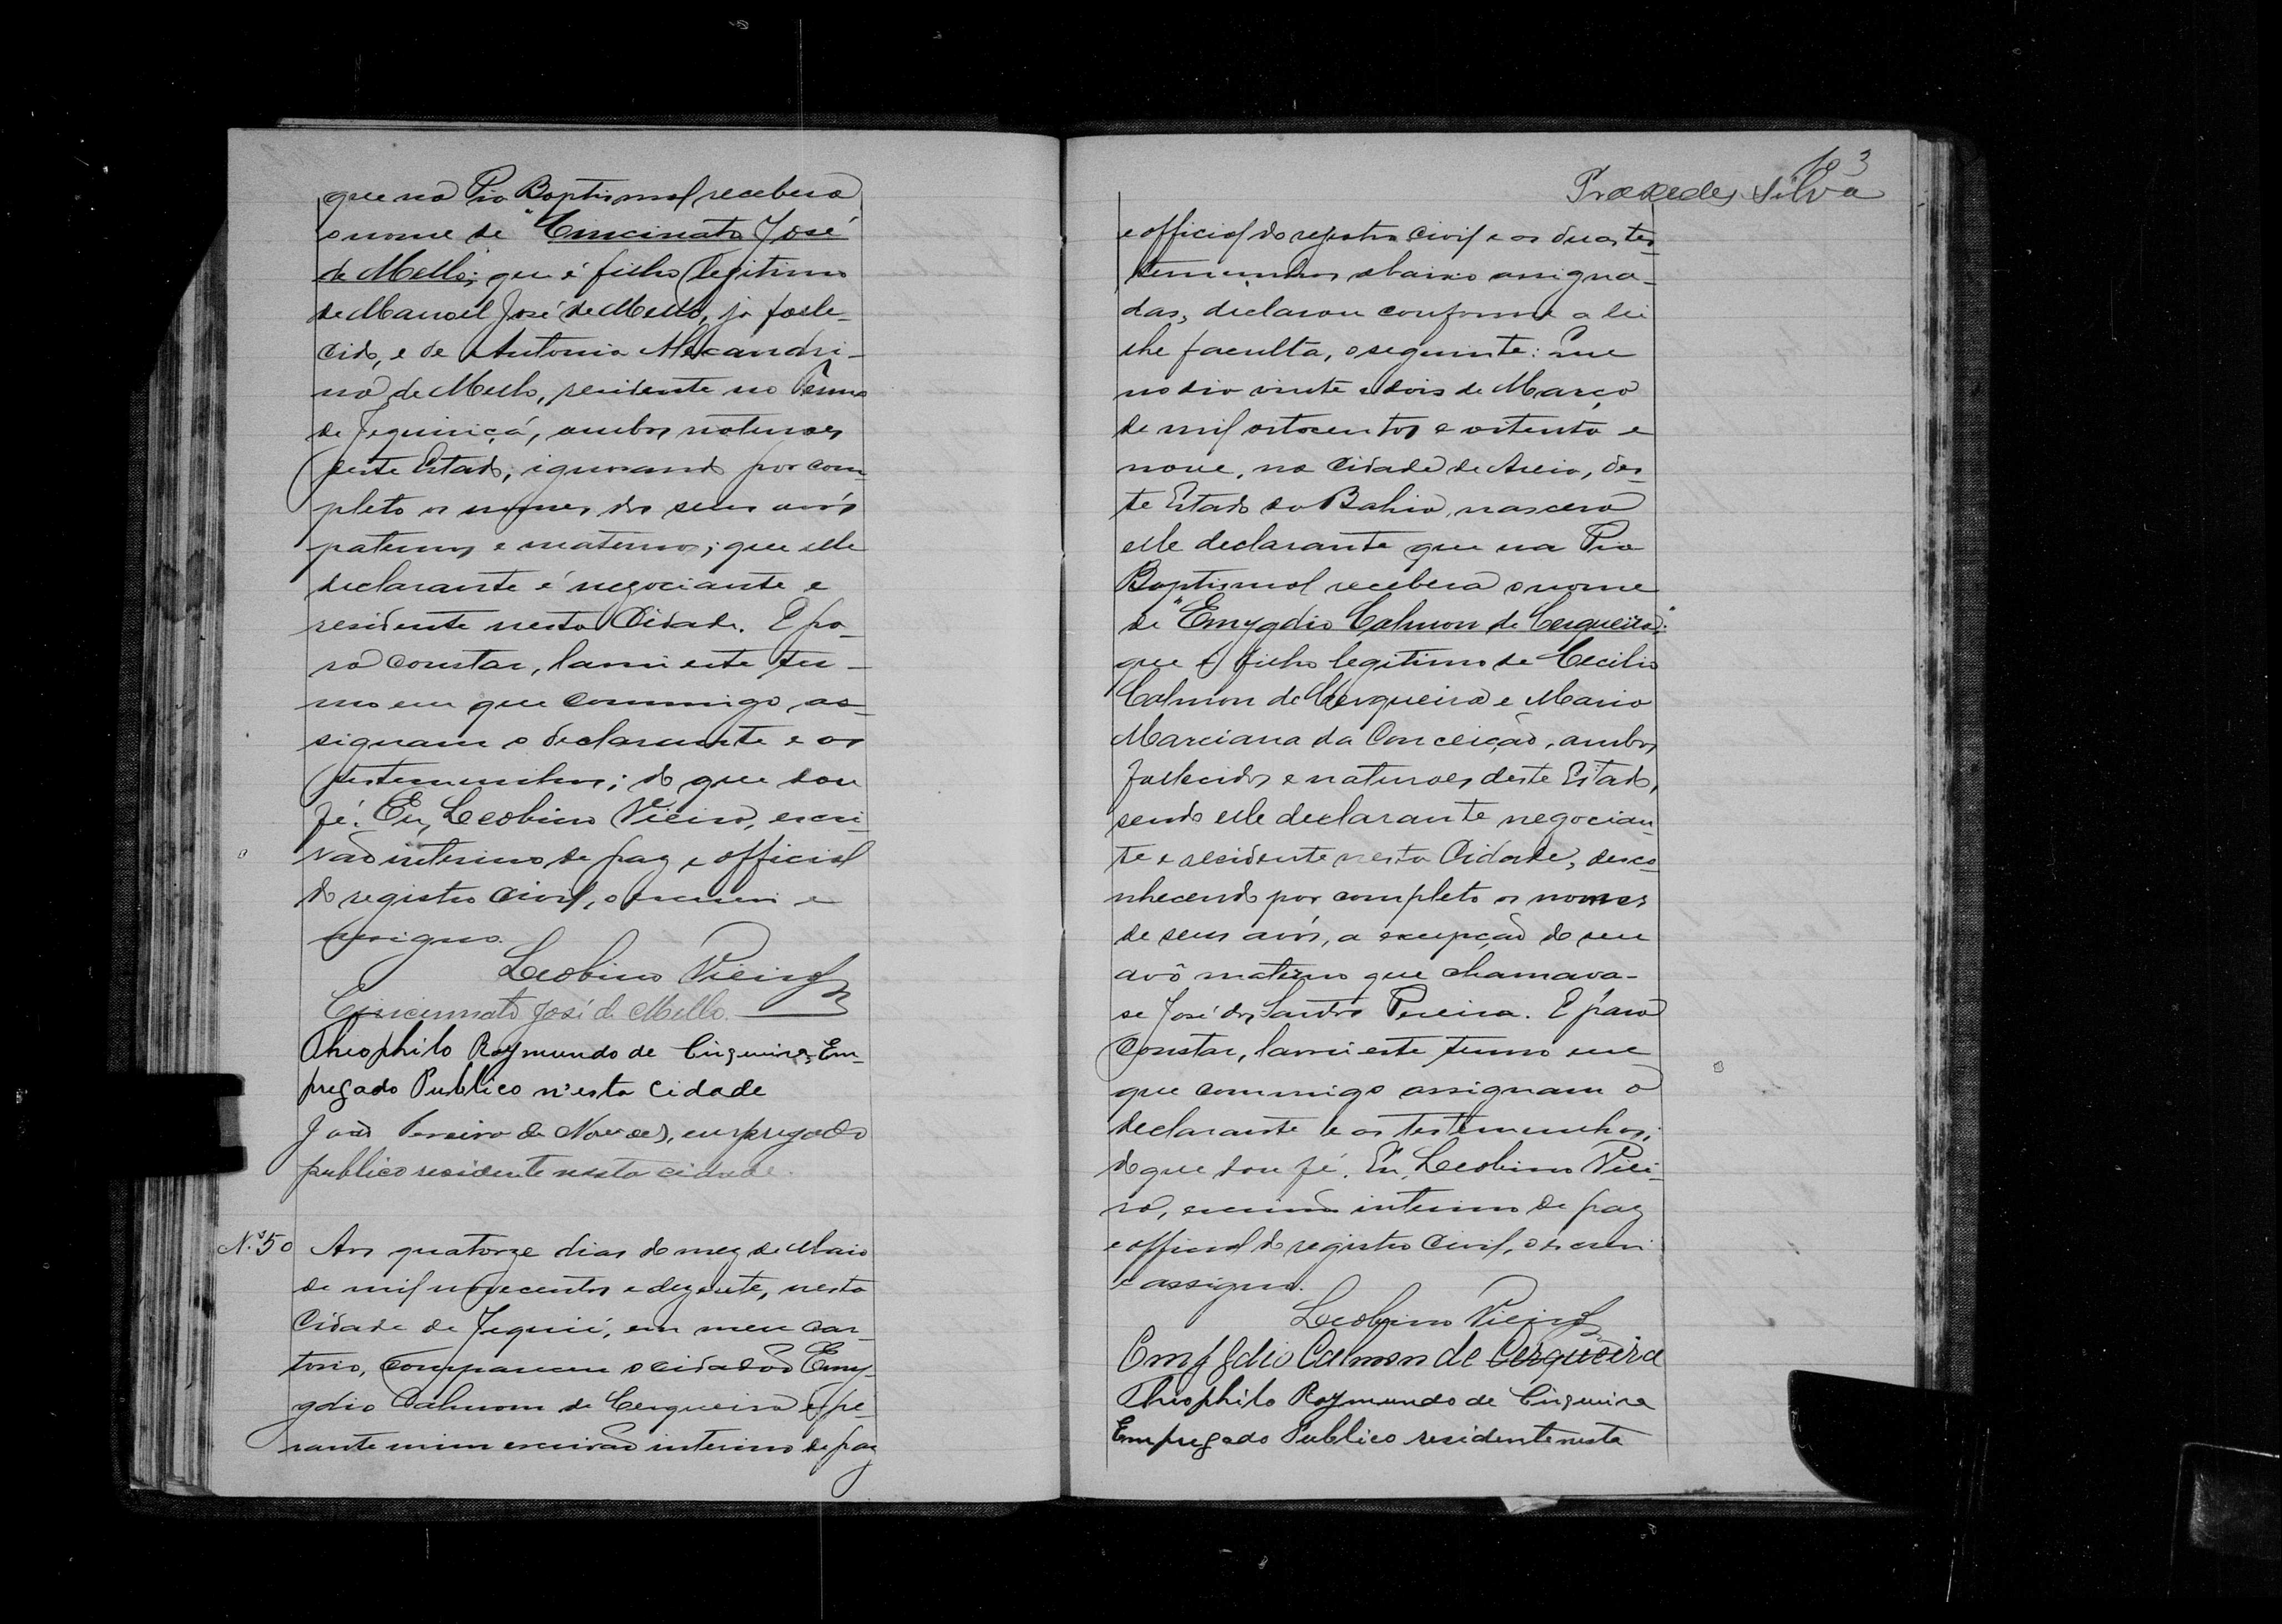 que na Pia Baptismal recebera
o nome de "Cincinato José
de Mello; que é filho legitimo
de Manoel José de Mello, já falle-
cido, e de Antonia Alexandri-
na de Mello, residente no Termo
de Jequiriçá, ambos naturaes
deste Estado, ignorando por com-
pleto os nomes dos seus avós
paternos e maternos; que elle
declarante é negociante e
residente nesta Cidade. E pa-
ra constar, lavrei este ter-
mo em que commigo as-
signam o declarante e as
testemunhas; do que dou
fé. Eu, Leobino Vieira, escri-
vão interino de paz e official
do registro civil, o escrevi e
assigno.
Leobino Vieira
Cincinnato José de Mello.
Theophilo Raymundo de Cirqueira, Em-
pregado Publico n'esta Cidade
João Pereira de Novaes, empregado
publico residente nesta cidade.
N.º 50 Aos quatorze dias do mez de Maio
de mil novecentos e dezesete, nesta
Cidade de Jequié, em meu car-
torio, compareceu o cidadão Emy-
gdio Calmom de Cerqueira e pe-
rante mim escrivão interino de paz
103
Praxedes Silva
e official do registro civil e as duas tes-
temunhas abaixo assigna-
das, declarou conforme a lei
lhe faculta, o seguinte: Que
no dia vinte e dois de Março
de mil oitocentos e oitenta e
nove, na Cidade de Areia, des-
te Estado da Bahia, nascera
elle declarante que na Pia
Baptismal recebera o nome
de "Emygdio Calmon de Cerqueira";
que é filho legitimo de Cecilio
Calmon de Cerqueira e Maria
Marciana da Conceição, ambos
fallecidos e naturaes deste Estado,
sendo elle declarante negocian-
te e residente nesta Cidade, desco-
nhecendo por completo os nomes
de seus avós, a excepção de seu
avô materno que chamava-
se José dos Santos Pereira. E para
constar, lavrei este termo em
que commigo assignam o
declarante e as testemunhas;
do que dou fé. Eu, Leobino Viei-
ra, escrivão interino de paz
e official do registro civil, o escrevi
e assigno.
Leobino Vieira
Emygdio Calmon de Cerqueira
Theophilo Raymundo de Cirqueira
Empregado Publico residente nesta